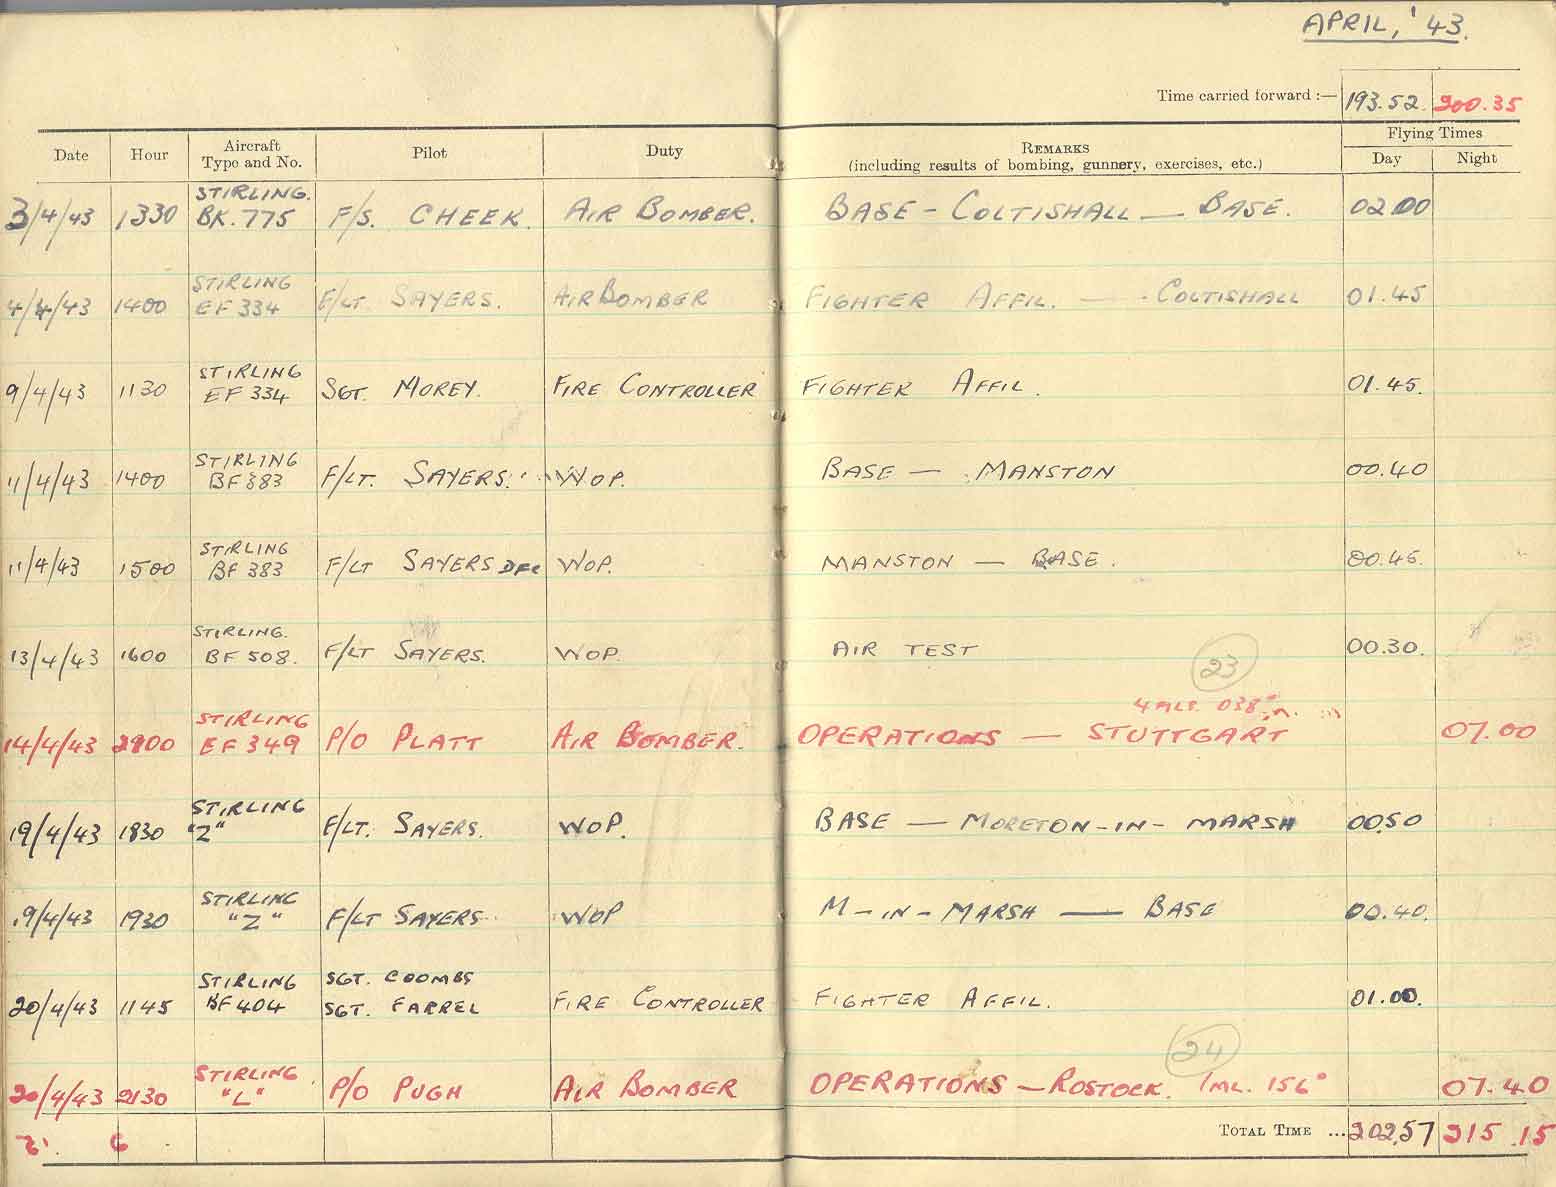 APRIL, '43.
Time carried forward :— 193.52. 200.35
Date Hour Aircraft Type and No. Pilot Duty REMARKS (including results of bombing, gunnery, exercises, etc.) Flying Times Day Night
3/4/43 1330 STIRLING. BK. 775 F/S. CHEEK. AIR BOMBER. BASE - COLTISHALL — BASE. 02.00
4/4/43 1400 STIRLING EF 334 F/LT. SAYERS. AIR BOMBER FIGHTER AFFIL. — COLTISHALL 01.45
9/4/43 1130 STIRLING EF 334 SGT. MOREY. FIRE CONTROLLER FIGHTER AFFIL. 01.45.
11/4/43 1400 STIRLING BF 383 F/LT. SAYERS. WOP. BASE — MANSTON 00.40
11/4/43 1500 STIRLING BF 383 F/LT SAYERS DFC WOP. MANSTON — BASE. 00.45.
13/4/43 1600 STIRLING. BF 508. F/LT SAYERS. WOP. AIR TEST 00.30.
23
14/4/43 STIRLING EF 349 P/O PLATT AIR BOMBER. OPERATIONS — STUTTGART 07.00
19/4/43 1830 STIRLING "Z" F/LT. SAYERS. WOP. BASE — MORETON-IN-MARSH 00.50
19/4/43 1930 STIRLING "Z" F/LT SAYERS. WOP M-IN-MARSH — BASE 00.40.
20/4/43 1145 STIRLING BF 404 SGT. COOMBS SGT. FARREL FIRE CONTROLLER FIGHTER AFFIL. 01.00.
24
20/4/43 2130 STIRLING "L" P/O PUGH AIR BOMBER OPERATIONS — ROSTOCK. 1 ML. 156°
TOTAL TIME ... 202.57 215.15
07.40